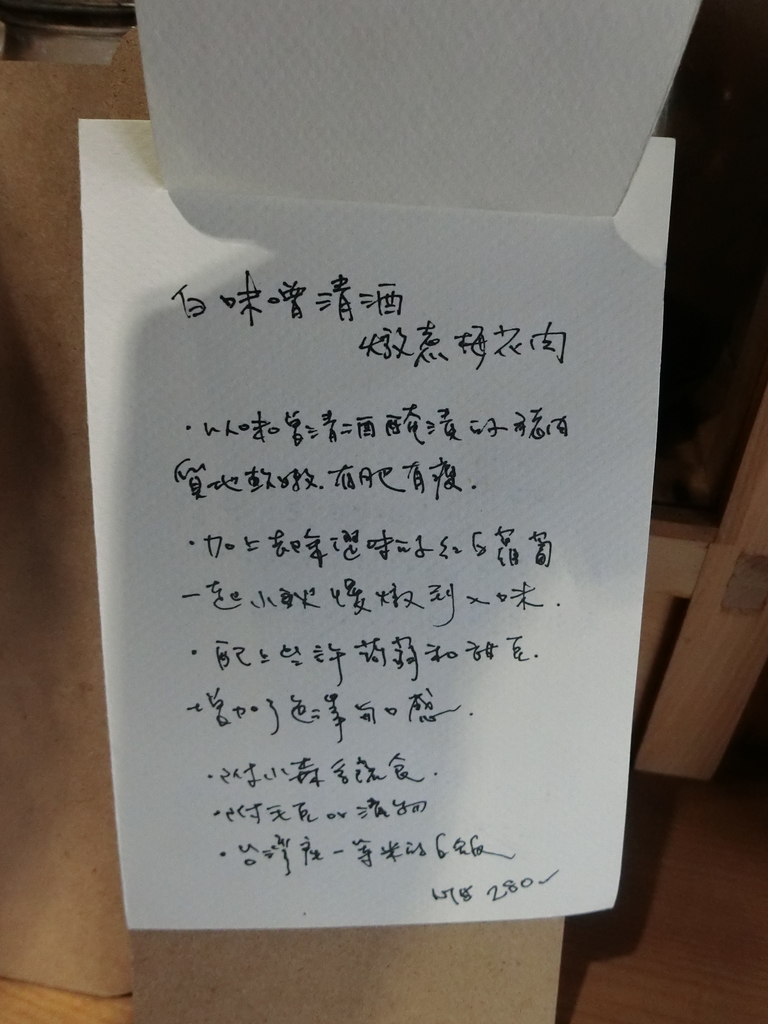 白味噌清酒
燉煮梅花肉
·以味噌清酒醃漬的豬肉
質地軟嫩.有肥有瘦.
·加上起來選味的紅白蘿蔔
一起小火慢燉到入味.
·配上些許蒟蒻和甜豆.
增加了色澤與口感.
·附小森系蔬食.
·附毛豆or漬物
·台灣產一等米的白飯
NT$ 280